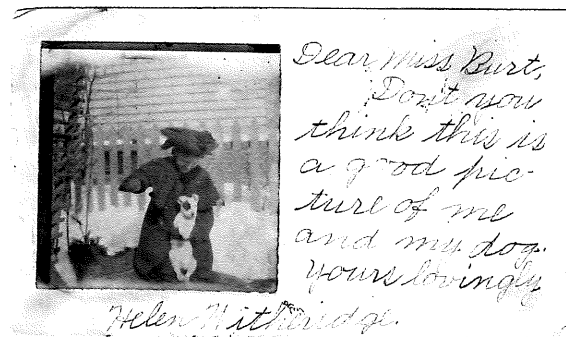 Dear Miss Burt,
Don't you
think this is
a good pic-
ture of me
and my dog.
Yours lovingly
Helen Witheridge.